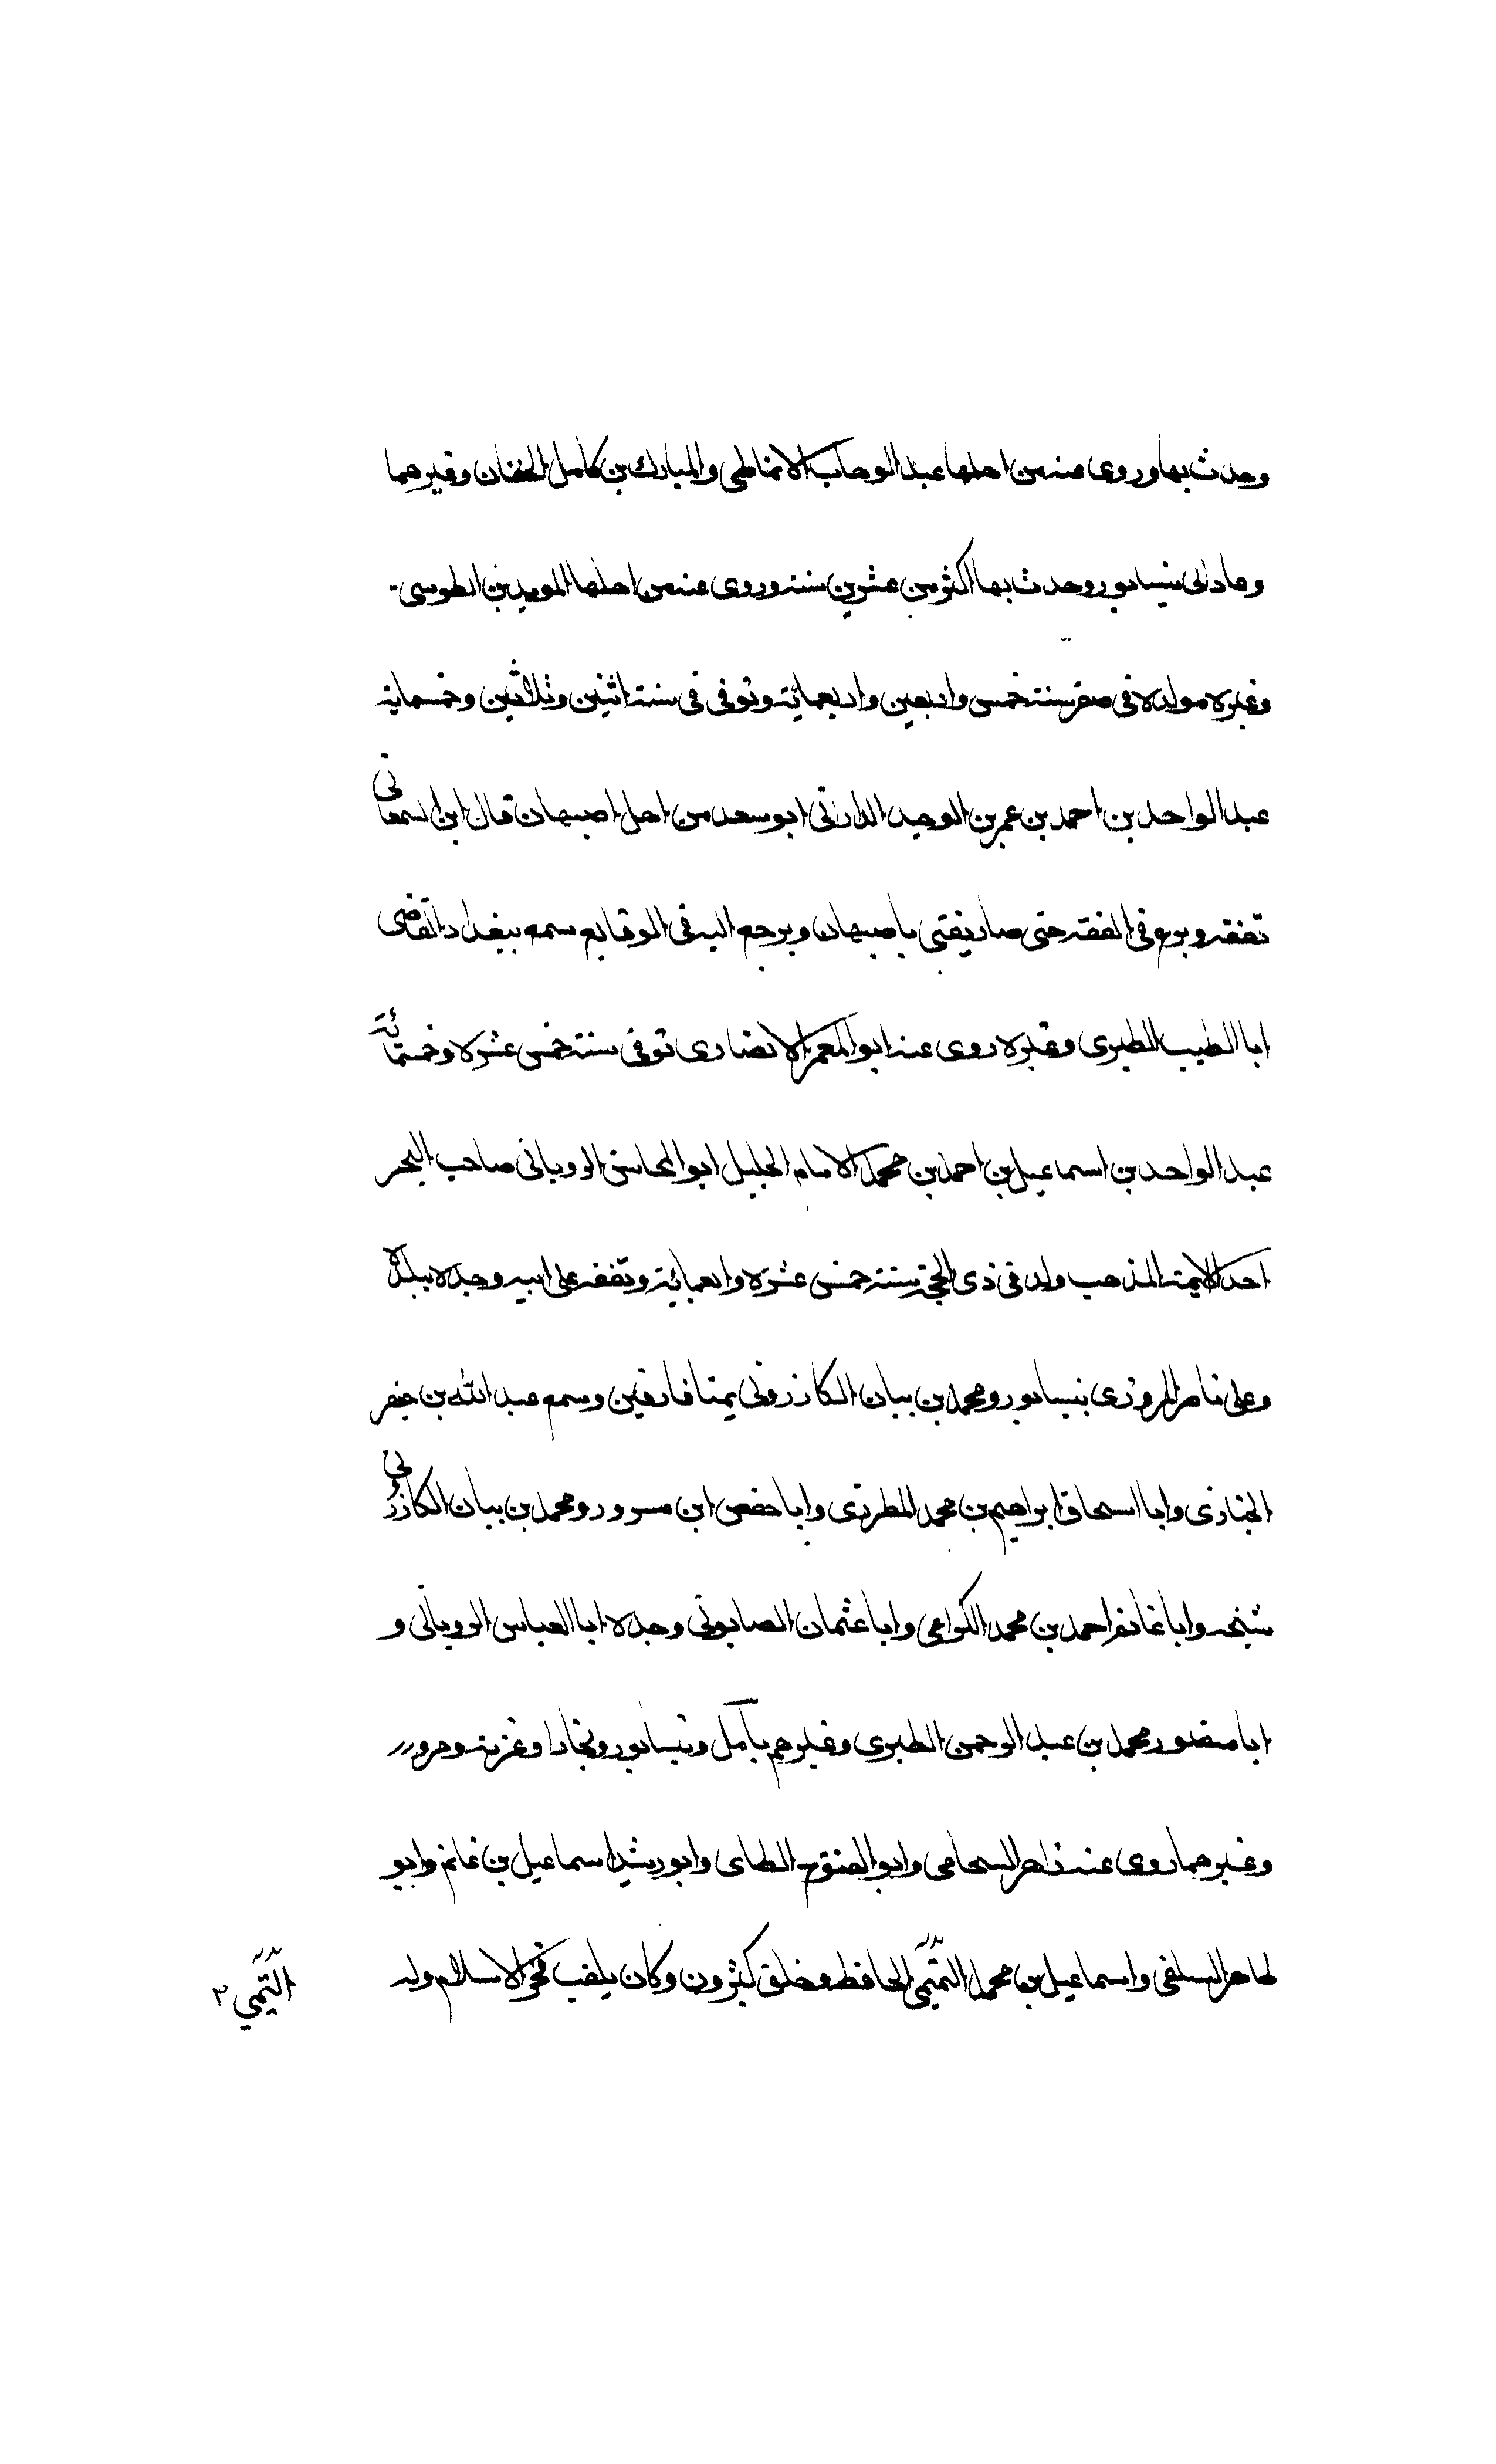 وحدث بها وروى عنه من اهلها عبد الوهاب الانماطى والمبارك بن كامل الخفاف وغيرهما
وعاد الى نيسابور وحدث بها اكثر من عشرين سنة وروى عنه من اهلها المويد بن الطوسى
وغيره مولده فى صفر سنة خمس واربعين واربعمائة وتوفى فى سنة اثنين وثلاثين وخمسماية
عبد الواحد بن احمد بن عمر بن الوحيد الدارانى ابو سعد من اهل اصبهان قال ابن السمعانى
تفقه وبرع فى الفقه حتى صار يفتى باصبهان ويرجع اليه فى الوقايع سمع ببغداد القاضى
ابا الطيب الطبرى وغيره روى عنه ابو المعمر الانصارى توفى سنة خمس عشره وخمسمائة
عبد الواحد بن اسماعيل بن احمد بن محمد الامام الجليل ابو المحاسن الرويانى صاحب البحر
احد الايمة المذهب ولد فى ذى الحجة سنة خمس عشره واربعمائة وتفقه على ابيه وجده ببلده
وعلى ناصر المروزى بنيسابور ومحمد بن بيان الكازرونى بميافارقين وسمع عبد الله بن جعفر
الخبازى وابا اسحاق ابراهيم بن محمد المطرزى وابا حفص ابن مسرور ومحمد بن بيان الكازرونى
شيخه وابا غانم احمد بن محمد الكراعى وابا عثمان الصابونى وجده ابا العباس الرويانى و
ابا منصور محمد بن عبد الرحمن الطبرى وغيرهم بآمل ونيسابور وبخارا وغزنة ومرو
وغيرهما روى عنه زاهر الشحامى وابو الفتوح الطاى وابو رشيد اسماعيل بن غانم وابو
طاهر السلفى واسماعيل بن محمد التيمى الحافظ وخلق كثيرون وكان يلقب فخر الاسلام ولد
التيمي ٣